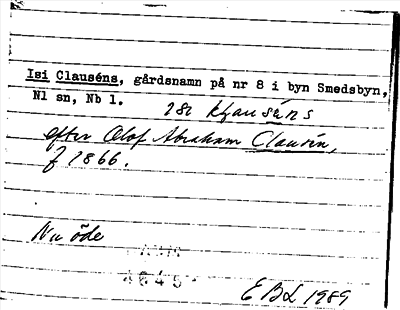 Isi Clauséns, gårdsnamn på nr 8 i byn Smedsbyn,
Nl sn, Nb l.
isi klauséns
efter Olof Abraham Clausén,
f 1866.
Nu öde
EBL 1989